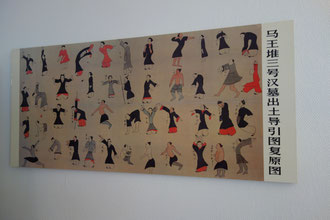 马王堆三号汉墓出土导引图复原图